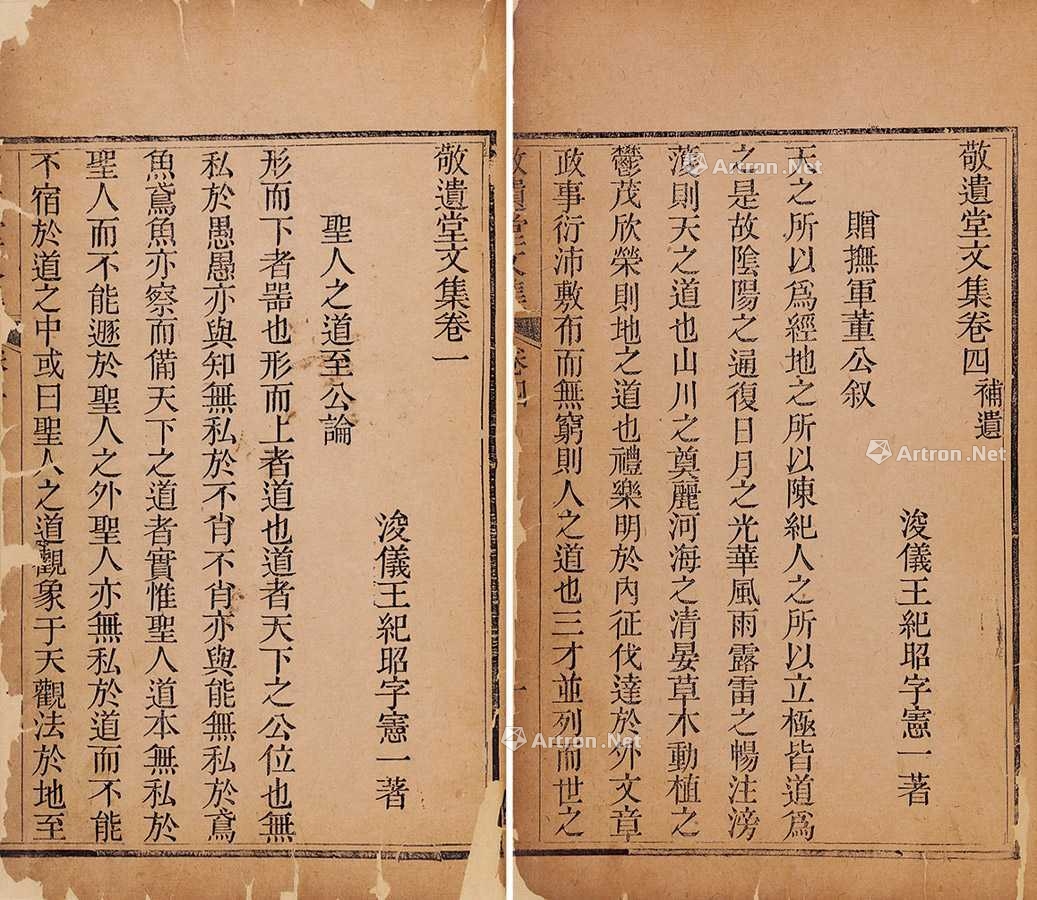 敬遺堂文集卷四 補遺
浚儀王紀昭字憲一著
贈撫軍董公叙
天之所以爲經地之所以陳紀人之所以立極皆道爲
之是故陰陽之通復日月之光華風雨露雷之暢注滂
則天之道也山川之奠麗河海之清晏草木動植之
鬱茂欣榮則地之道也禮樂明於內征伐達於外文章
政事衍沛敷布而無窮則人之道也三才並列而世之
敬遺堂文集卷一
浚儀王紀昭字憲一著
聖人之道至公論
形而下者器也形而上者道也道者天下之公位也無
私於愚愚亦與知無私於不肖不肖亦與能無私於鳶
魚鳶魚亦察而備天下之道者實惟聖人道本無私於
聖人而不能遯於聖人之外聖人亦無私於道而不能
不宿於道之中或曰聖人之道觀象于天觀法於地至
Artron.Net
Artron.Net
Artron.Net